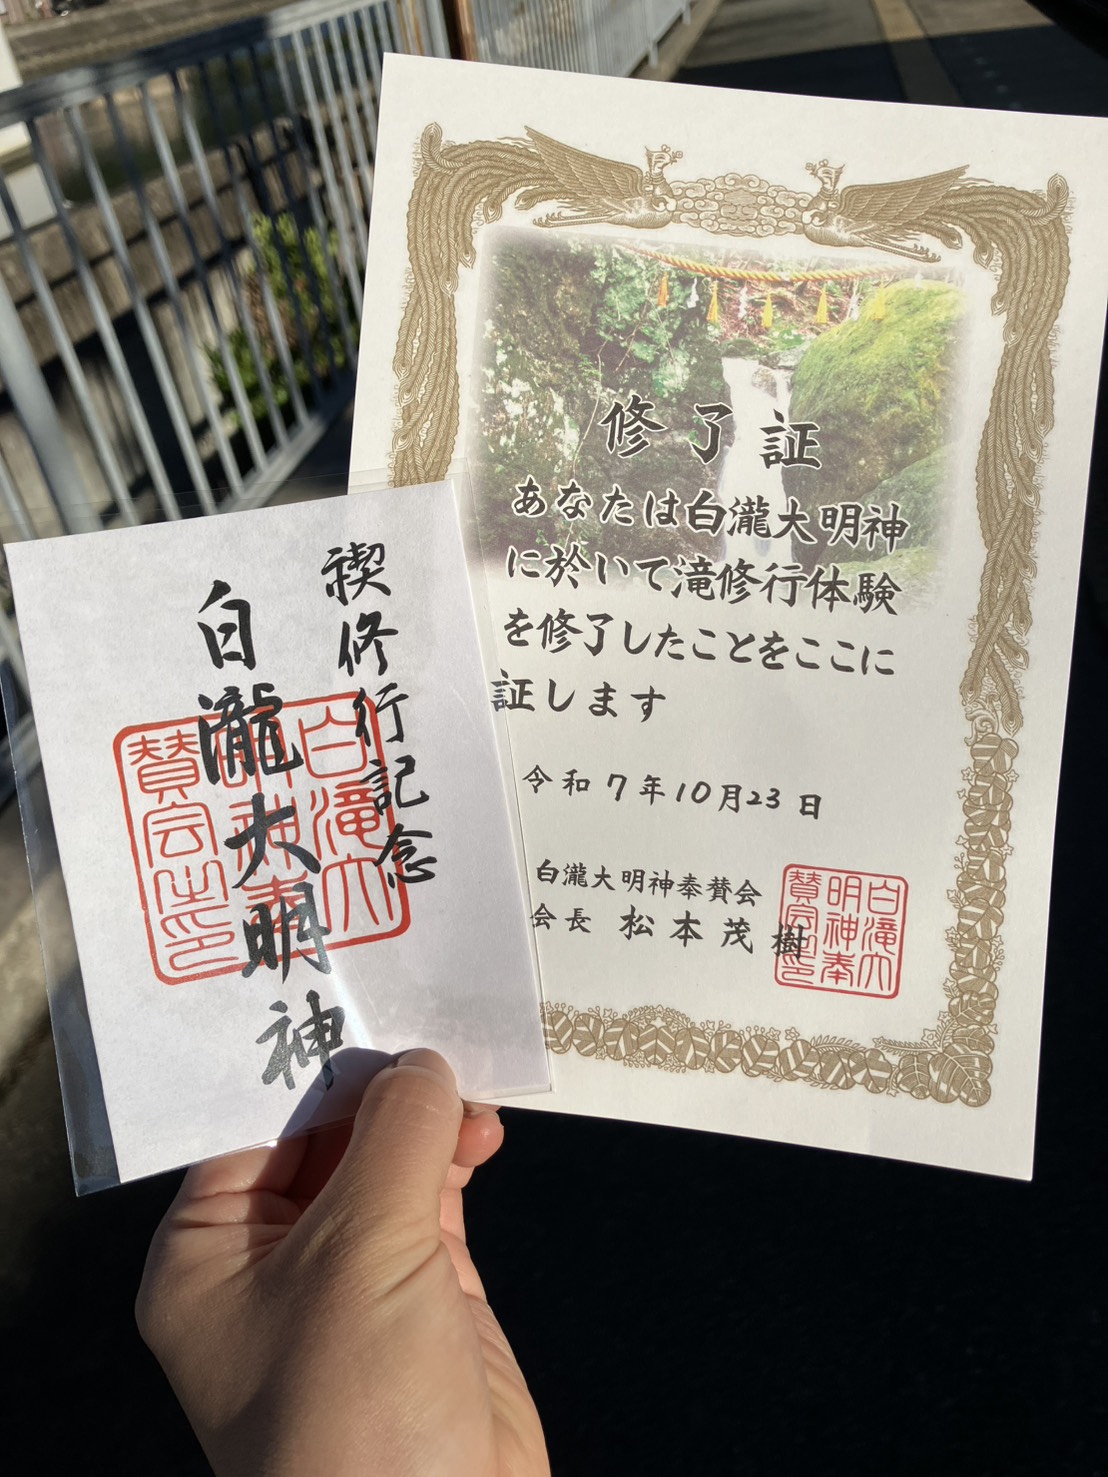 禊修行記念
白瀧大明神
白滝大
明神奉
賛会之印
修了証
あなたは白瀧大明神
に於いて滝修行体験
を修了したことをここに
証します
令和7年10月23日
白瀧大明神奉賛会
会長 松本茂樹
白滝大
明神奉
賛会之印